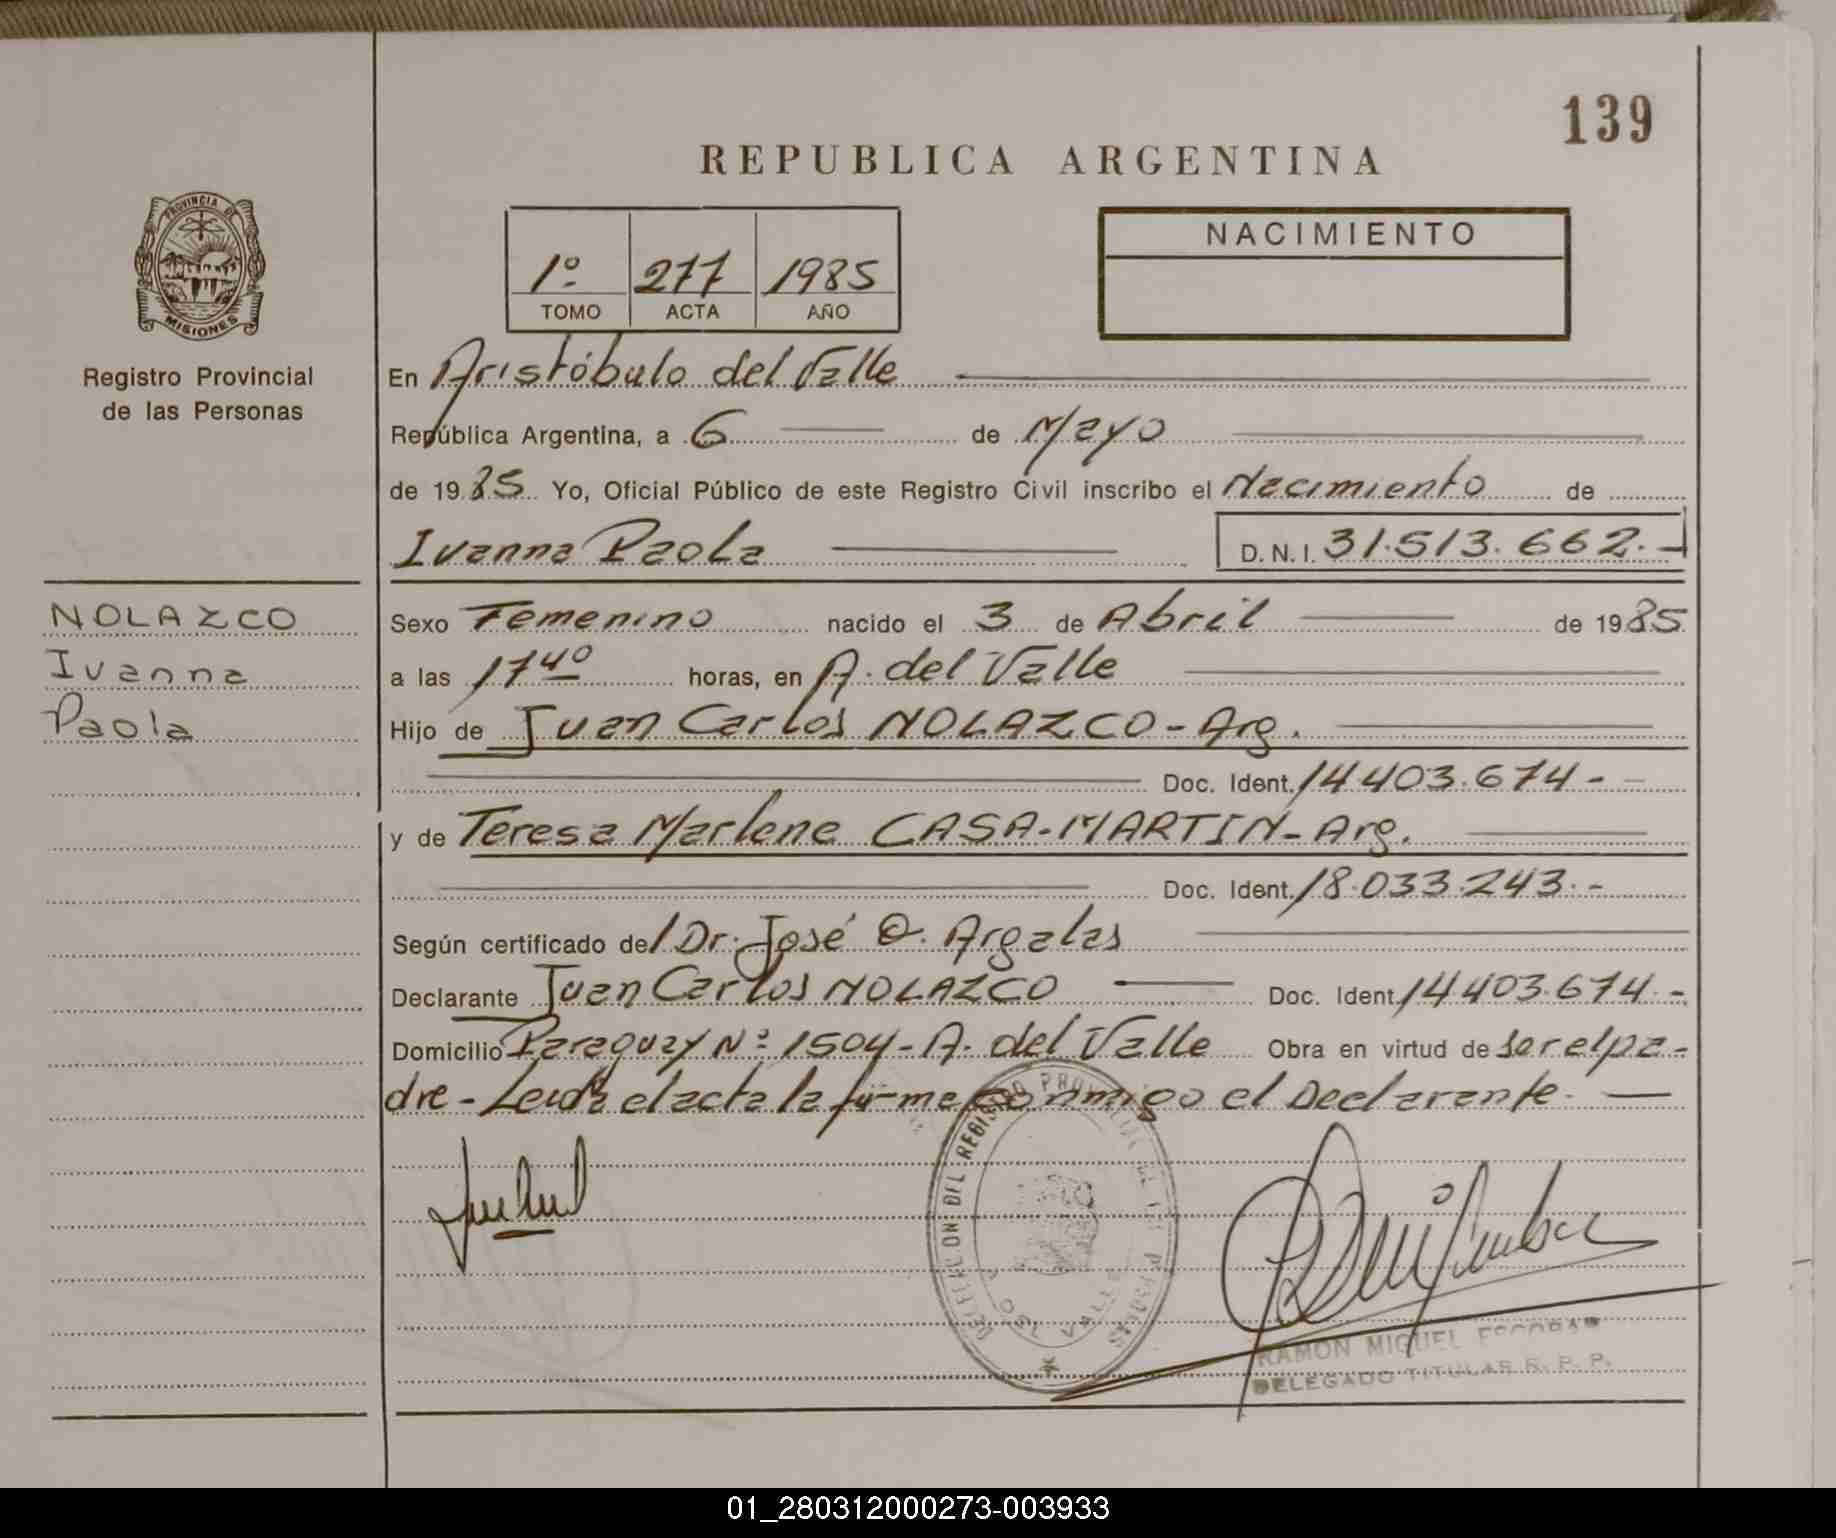 139
REPUBLICA ARGENTINA
PROVINCIA DE
MISIONES
Registro Provincial
de las Personas
1º 277 1985
TOMO ACTA AÑO
NACIMIENTO
En Aristóbulo del Valle
República Argentina, a 6 de Mayo
de 1985 Yo, Oficial Público de este Registro Civil inscribo el Nacimiento de
Ivanna Paola D.N.I. 31.513.662.-
NOLAZCO
Ivanna
Paola
Sexo Femenino nacido el 3 de Abril de 1985
a las 17 40 horas, en A. del Valle
Hijo de Juan Carlos NOLAZCO - Arg.
Doc. Ident. 14.403.674 -
y de Teresa Marlene CASA-MARTIN - Arg.
Doc. Ident. 18.033.243.-
Según certificado del Dr. José O. Argalas
Declarante Juan Carlos NOLAZCO Doc. Ident. 14.403.674.-
Domicilio Paraguay Nº 1504 - A. del Valle Obra en virtud de ser el pa-
dre - Leida el acta la firma conmigo el Declarante.
DELEGACION DEL REGISTRO PROVINCIAL DE LAS PERSONAS
A. DEL VALLE
RAMON MIGUEL ESCOBAR
DELEGADO TITULAR R. P. P.
01_280312000273-003933